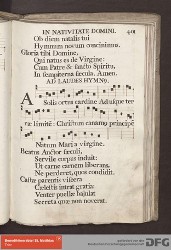 IN NATIVITATE DOMINI. 421
Ob diem natalis tui
Hymnum novum concinimus.
Gloria tibi Domine,
Qui natus es de Virgine:
Cum Patre & sancto Spiritu,
In sempiterna secula. Amen.
AD LAUDES HYMN9.
A Solis ortus cardine Ad usque ter
rae limitē: Christum canamus principē
Natum Maria virgine.
Beatus Auctor seculi,
Servile corpus induit:
Ut carne carnem liberans,
Ne perderet, quos condidit.
Castae parentis viscera
Caelestis intrat gratia:
Venter puellae bajulat
Secreta quae non noverat.
DFG